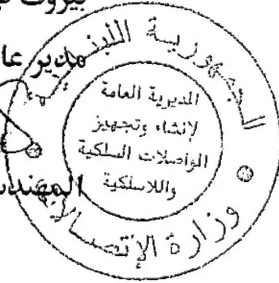 بيروت في
مدير عام
الجمهورية اللبنانية
المديرية العامة
لإنشاء وتجهيز
المواصلات السلكية
واللاسلكية
المهندس
وزارة الإتصالات